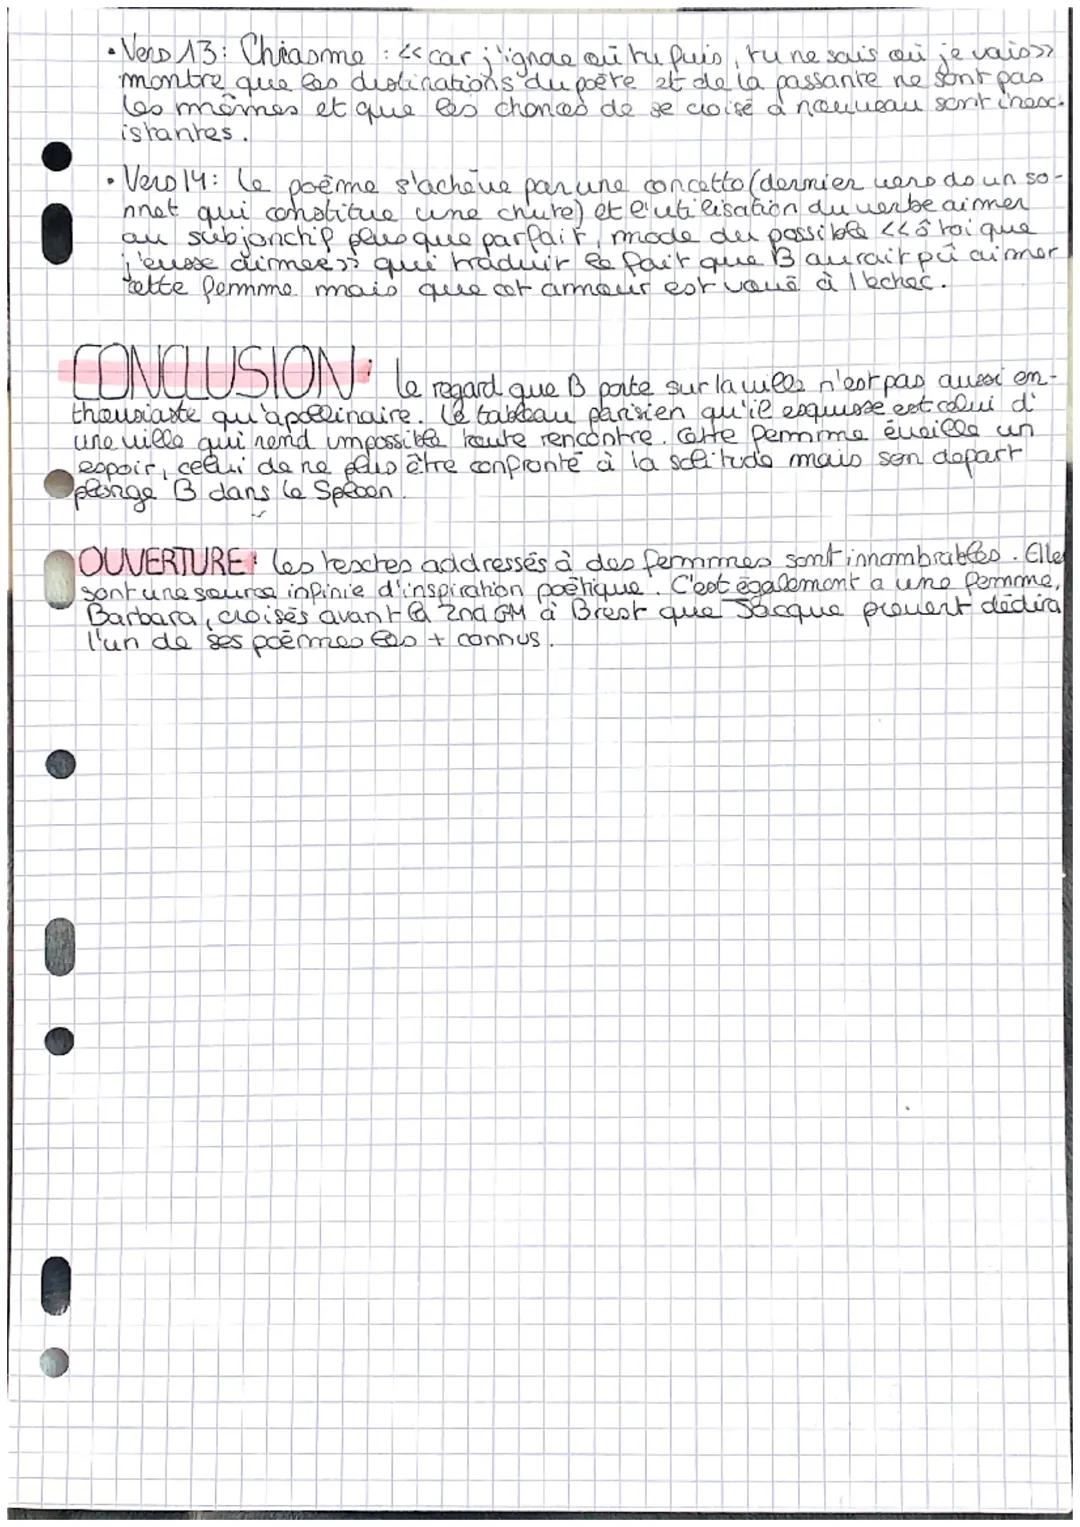 • Vers 13: Chiasme : << car j'ignore où tu fuis, tu ne sais où je vais>>
montre que les destinations du poète et de la passante ne sont pas
les mêmes et que les chances de se croisé à nouveau sont inexc-
istantes.
• Vers 14: le poème s'achève par une concetto (dernier vers do un so-
nnet qui constitue une chute) et l'utilisation du verbe aimer
au subjonctif plus que parfait, mode du possible << ô toi que
j'eusse aimée>> qui traduit le fait que B aurait pû aimer
cette femme mais que cet amour est voué à l'echec.
CONCLUSION: le regard que B porte sur la ville n'est pas aussi en-
thousiaste qu'apollinaire. Le tableau parisien qu'il esquisse est celui d'
une ville qui rend impossible toute rencontre. Cette femme éveille un
espoir, celui de ne plus être confronté à la solitude mais son depart
plonge B dans le Spleen.
OUVERTURE: les textes addressés à des femmes sont innombrables. Elles
sont une source infinie d'inspiration poétique. C'est également a une femme,
Barbara, croisés avant la 2nd GM à Brest que Jacque prevert dédira
l'un de ses poèmes les + connus.